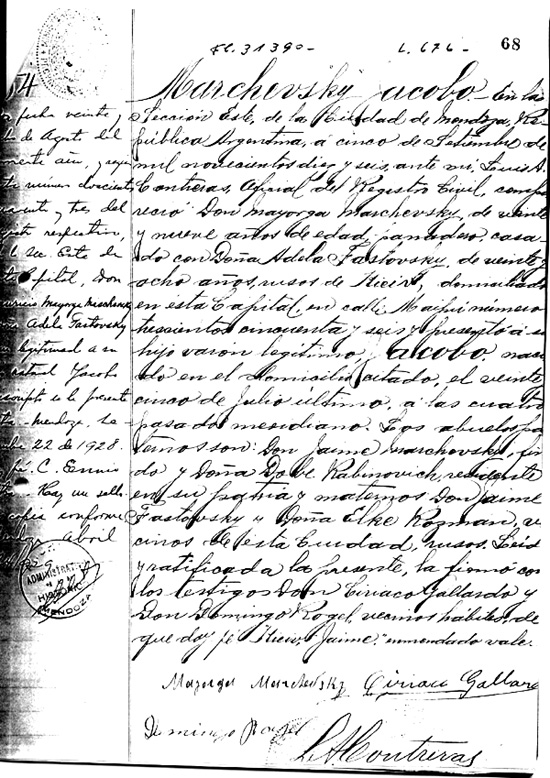 Fl. 31390-
L. 676-
68
Marchevsky Jacobo.- En la
Sección Este, de la Ciudad de Mendoza, Re-
pública Argentina, á cinco de Setiembre de
mil novecientos diez y seis, ante mi, Luis A.
Contreras, Oficial del Registro Civil, compa
reció Don Mayorga Marchevsky, de veinte
y nueve años de edad, panadero, casa-
do con Doña Adela Fastovsky, de veinte y
ocho años, rusos de Kieiv, domiciliado
en esta Capital, en calle Maipú número
trescientos cincuenta y seis y presentó á su
hijo varón legítimo, Jacobo, naci
do en el domicilio citado, el veinte
cinco de Julio último, á las cuatro
pasado meridiano. Los abuelos pa
ternos son: Don Jaime Marchevsky, fina
do y Doña Dove Rabinovich, residente
en su patria y maternos Don Jaime
Fastovsky y Doña Elke Rozman, ve
cinos de esta Ciudad, rusos. Leida
y ratificada la presente, la firmó con
los testigos Don Ciriaco Gallardo y
Don Domingo Rogel, vecinos hábiles, de
que doy fe. Kieiv, Jaime, "enmendado vale.
Mayorga Marchevsky
Ciriaco Gallardo
Domingo Rogel
L A Contreras
54
fecha veinte y
de Agost del
año,
número doscient
y tres del
respectivo,
Sec. Este de
Capital, Don
Adela Fastovsky
legitimad a su
Jacobo
inscripto en la presente
Mendoza,
22 de 1928.
C. Ennis
Hay un sello
copia conforme
Abril
ADMINISTRAT
HISTORIC
MENDOZA